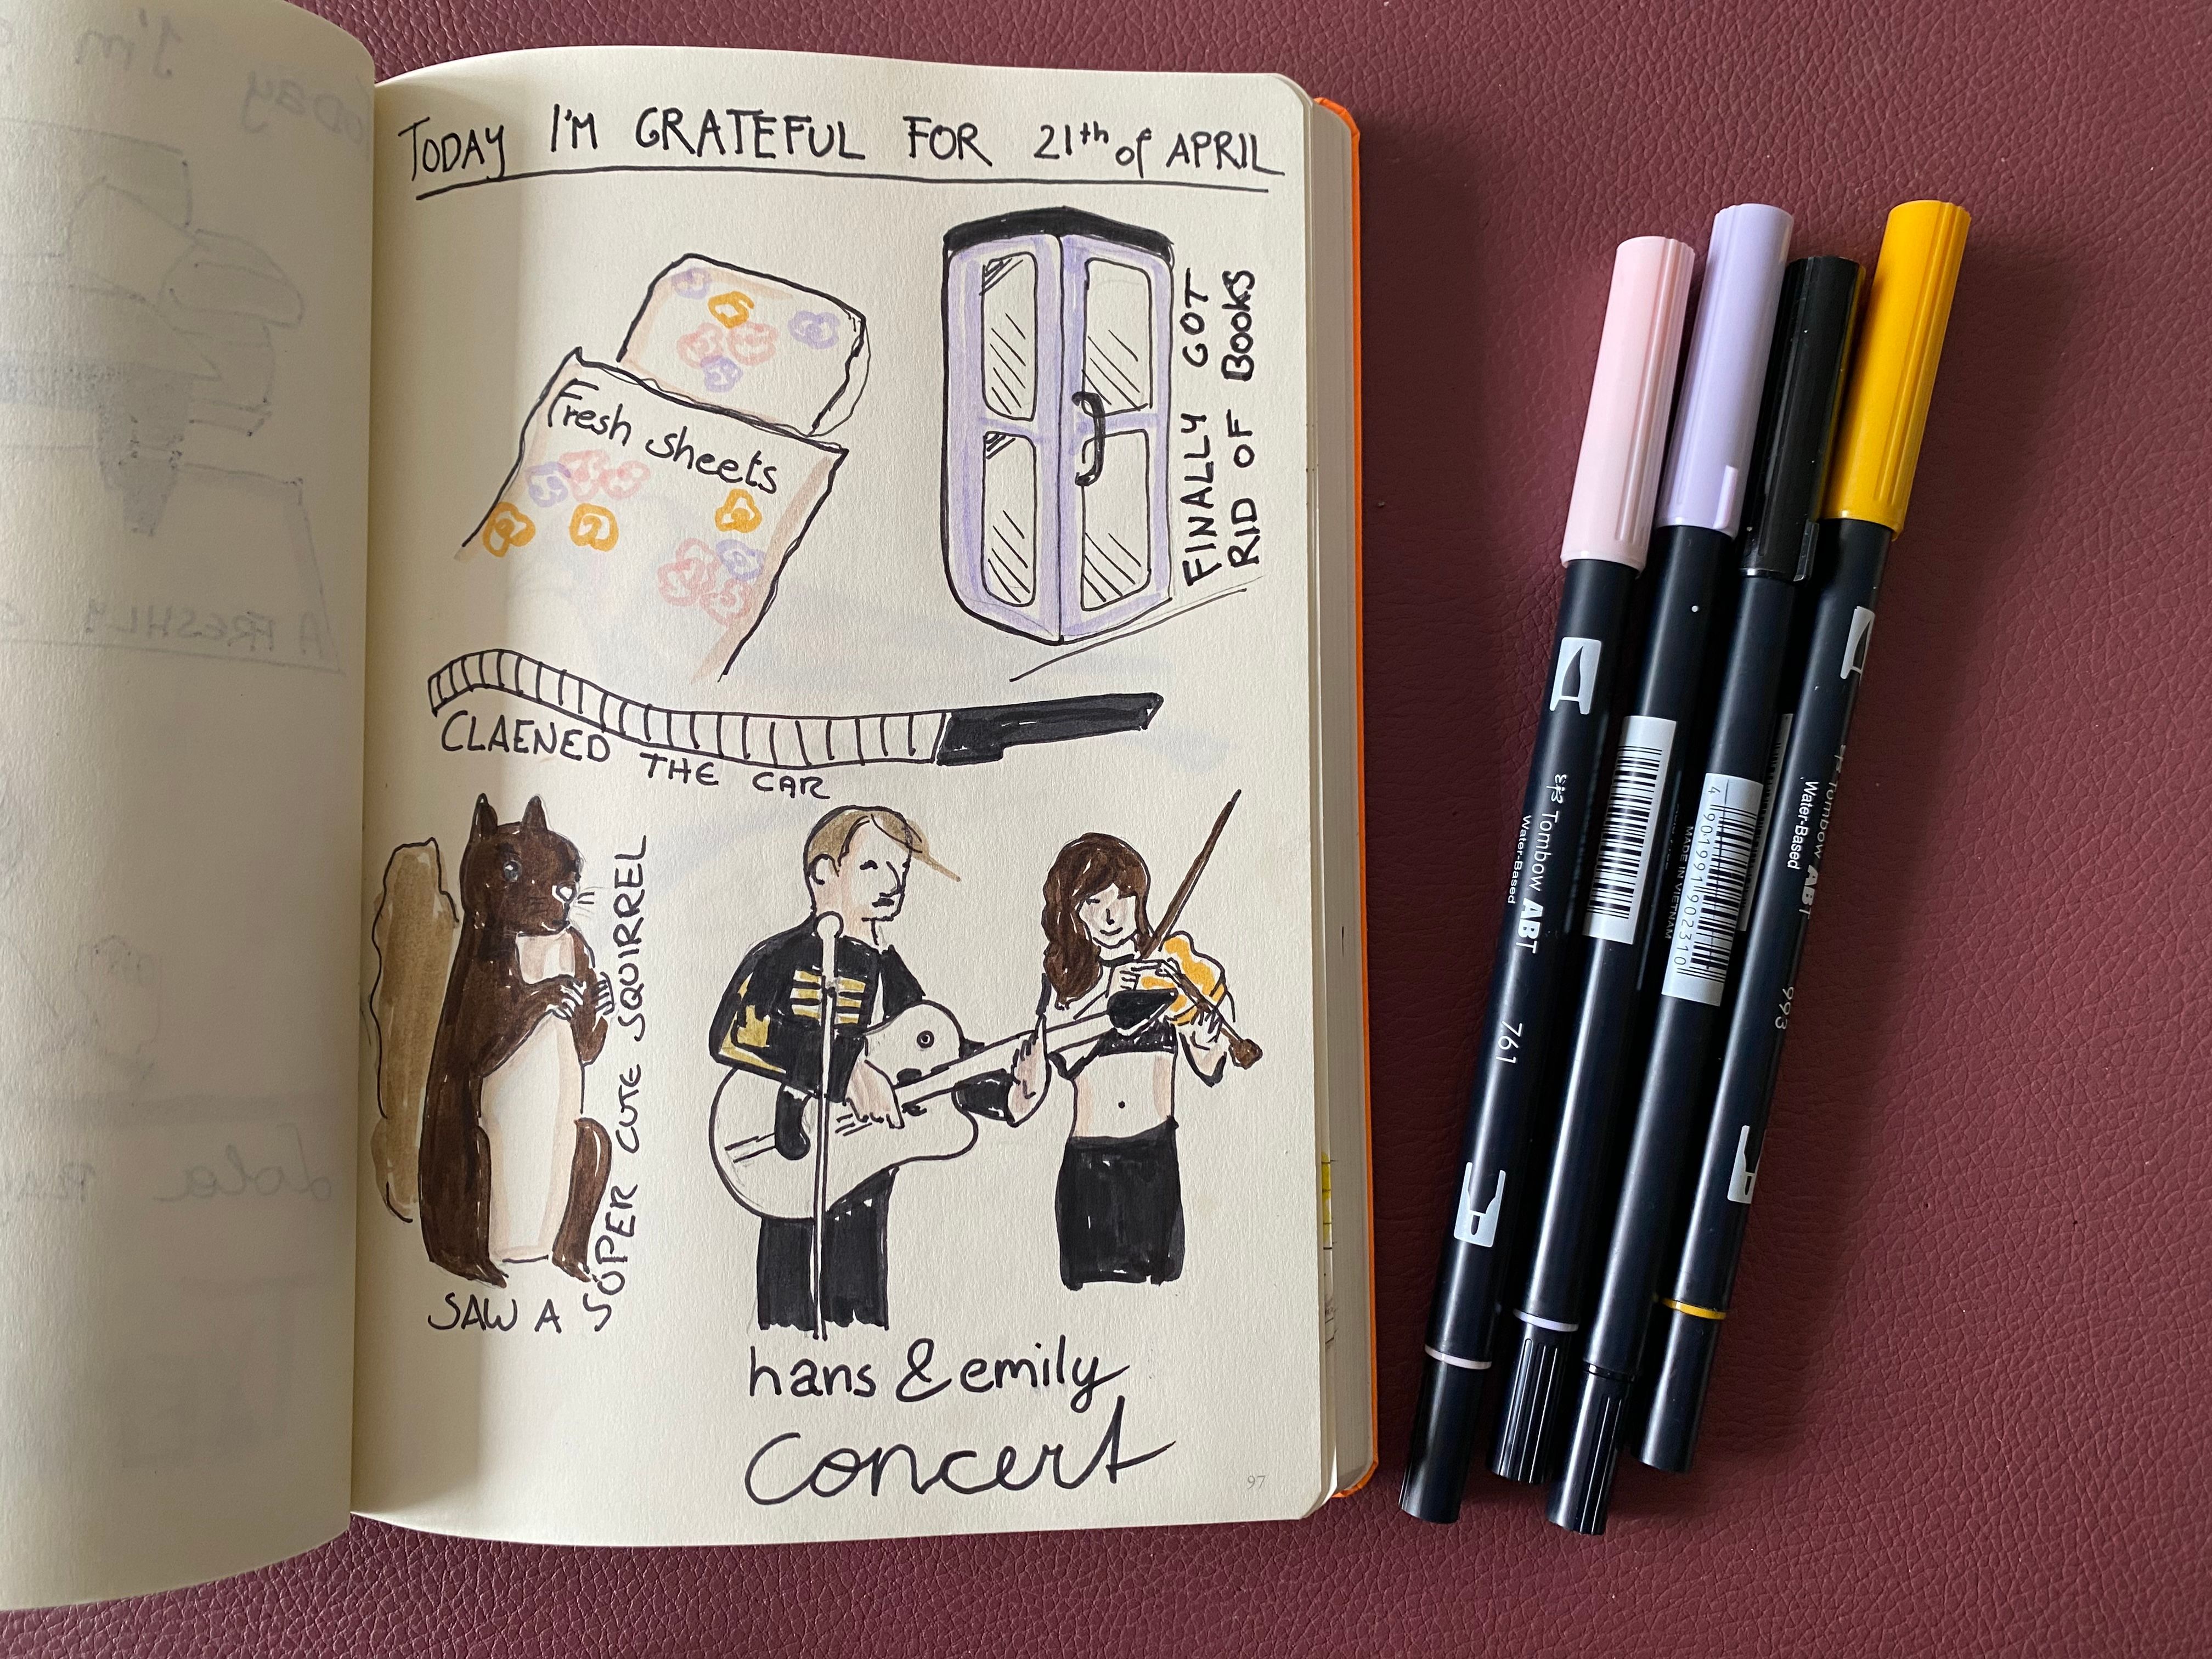 TODAY I'M GRATEFUL FOR 21th of APRIL
Fresh sheets
FINALLY GOT
RID OF BOOKS
CLAENED THE CAR
SAW A SUPER CUTE SQUIRREL
hans & emily
concert
97
Tombow ABT
Water-Based
761
MADE IN VIETNAM
4 901991 902310
Tombow ABT
Water-Based
993
Today I'm
A FRESHLY
Lola